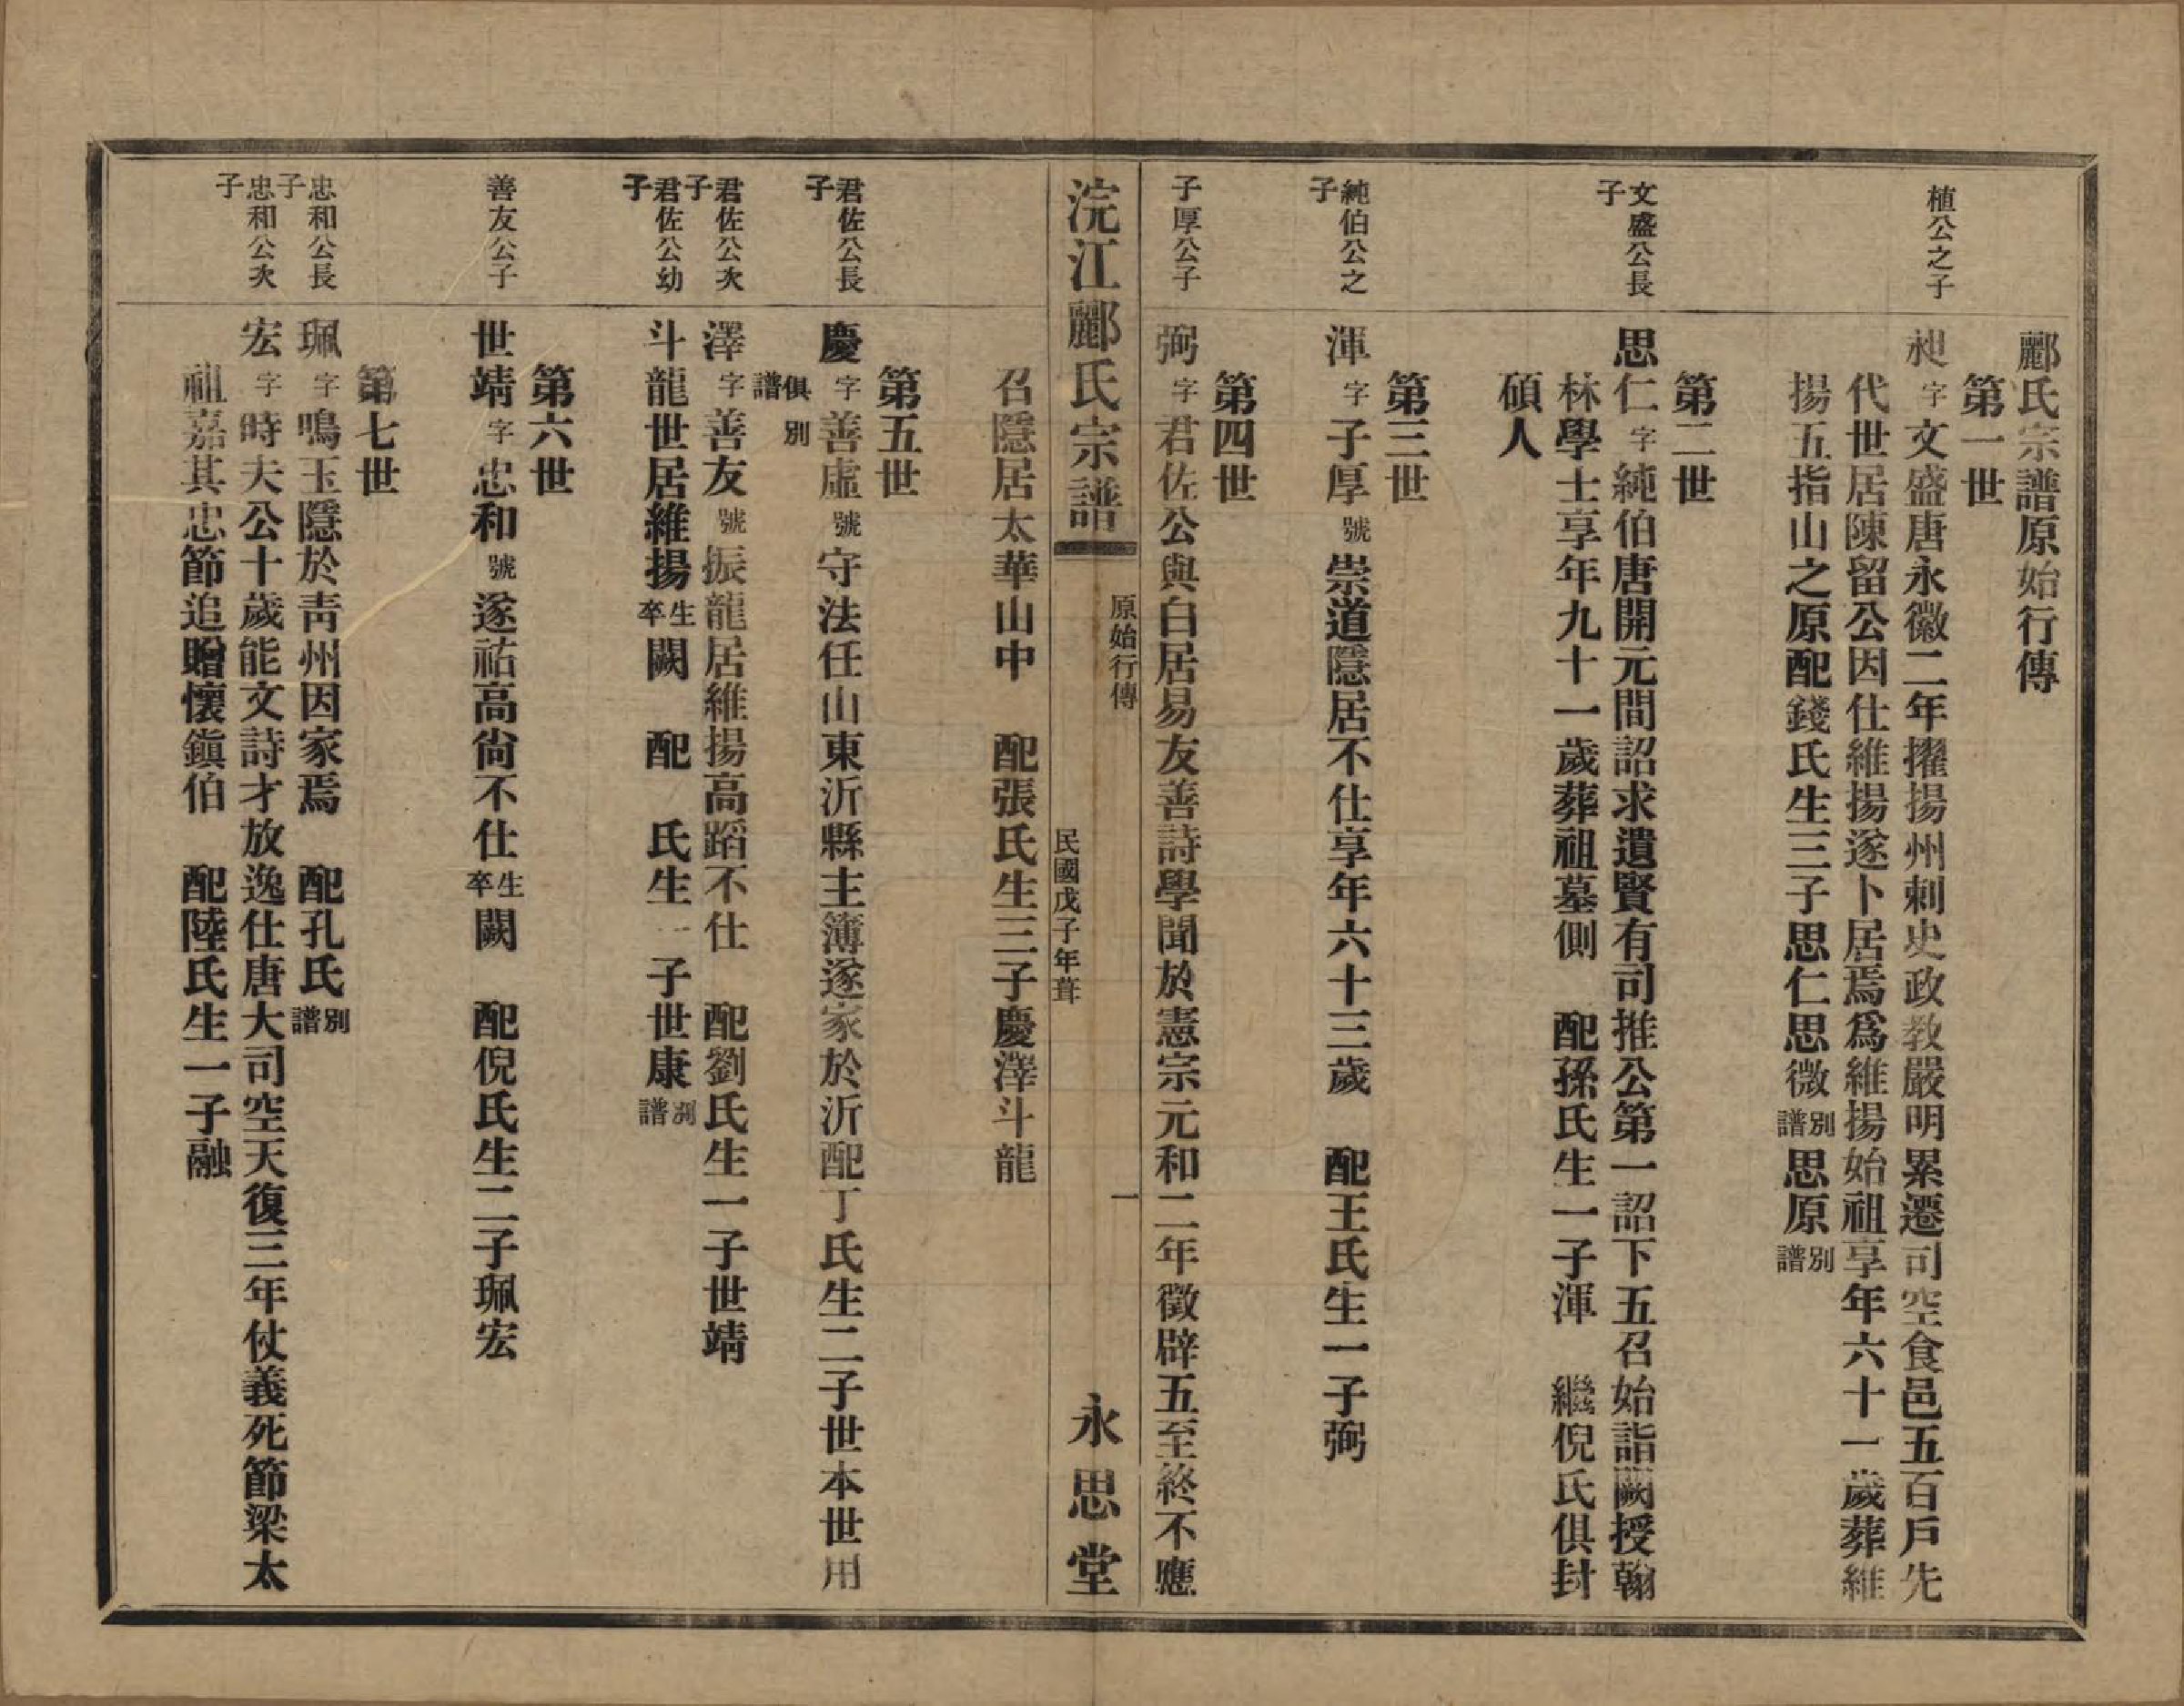 酈氏宗譜原始行傳
第一世
植公之子
昶字文盛唐永徽二年擢揚州刺史政教嚴明累遷司空食邑五百戶先
代世居陳留公因仕維揚遂卜居焉爲維揚始祖享年六十一歲葬維
揚五指山之原配錢氏生三子思仁思微別譜思原別譜
第二世
文盛公長子
思仁字純伯唐開元間詔求遺賢有司推公第一詔下五召始詣闕授翰
林學士享年九十一歲葬祖墓側　配孫氏生一子渾　繼倪氏俱封
碩人
第三世
純伯公之子
渾字子厚號崇道隱居不仕享年六十三歲　配王氏生一子弼
第四世
子厚公子
弼字君佐公與白居易友善詩學聞於憲宗元和二年徵辟五至終不應
浣江酈氏宗譜
原始行傳
民國戊子年葺
一
永思堂
召隱居太華山中　配張氏生三子慶澤斗龍
第五世
君佐公長子
慶字善虛號守法任山東沂縣主簿遂家於沂配丁氏生二子世本世用
俱別譜
君佐公次子
澤字善友號振龍居維揚高蹈不仕　配劉氏生一子世靖
君佐公幼子
斗龍世居維揚生卒闕　配　氏生一子世康別譜
第六世
善友公子
世靖字忠和號遂祐高尙不仕生卒闕　配倪氏生二子珮宏
第七世
忠和公長子
珮字鳴玉隱於靑州因家焉　配孔氏別譜
忠和公次子
宏字時夫公十歲能文詩才放逸仕唐大司空天復三年仗義死節梁太
祖嘉其忠節追贈懷鎭伯　配陸氏生一子融